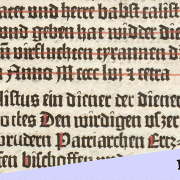 vnd herre babst calist
vnd geben hat widder die
wircklichen tyrannen d
Anno M cccc lvi z cetra
listus ein diener der diener
gotes Den wirdigen vszer
brudern Patriarchen Ertz
bischoffen vnd